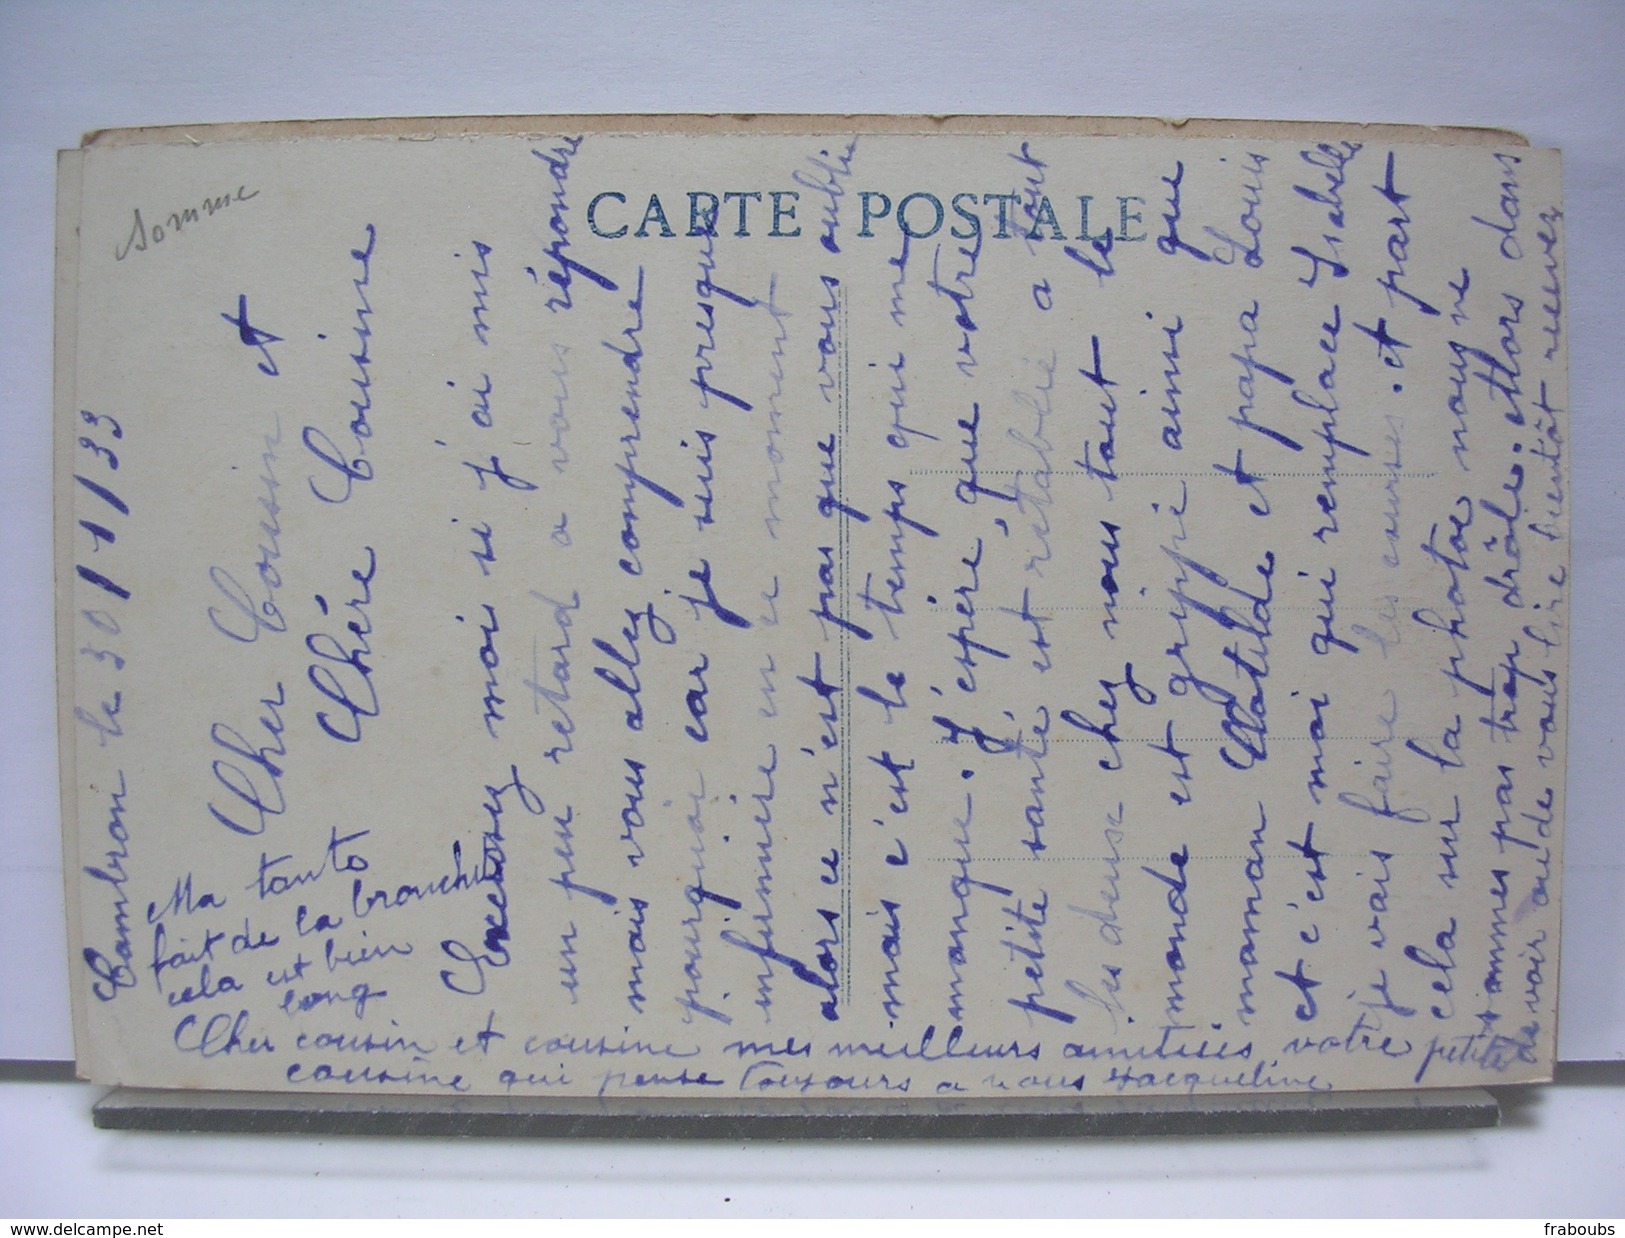 somme
CARTE POSTALE
Cambron le 30/1/33
Cher Cousin et
Chére Cousine
Excusez moi si j'ai mis
un peu retard a vous répondre
mais vous allez comprendre
pourquoi car je suis presque
infirmière en ce moment
alors ce n'est pas que vous oublie
mais c'est le temps qui me
manque. J'espère que votre
petite santé est rétablie a tout
les deux chez nous tout le
monde est grippé ainsi que
maman Clotilde et papa Louis
et c'est moi qui remplace Isabelle
je vais faire les courses. et part
cela sur la photoe nous ne
sommes pas trop drôle. allors dans
de voir ou de vous lire bientôt recevez
Ma tanto
fait de la bronchite
cela est bien
long
Cher cousin et cousine mes meilleurs amitiées votre petite
cousine qui pense toujours a vous Jacqueline
www.delcampe.net
fraboubs